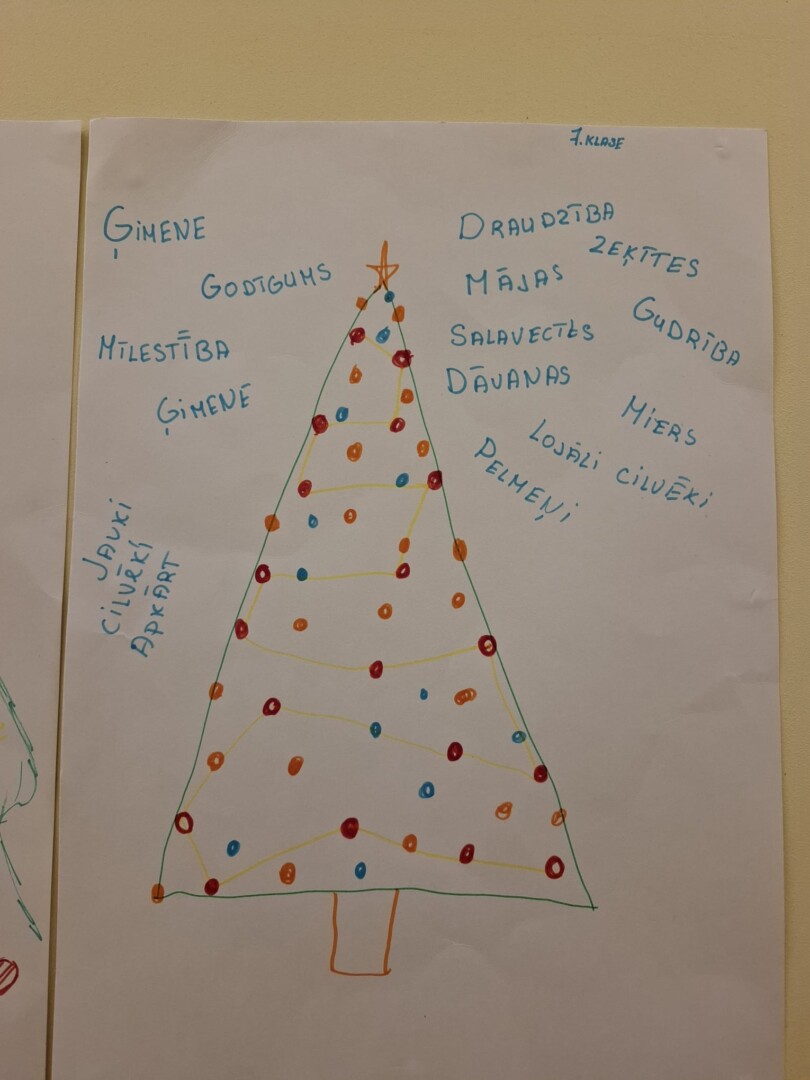 7. KLASE
ĢIMENE
GODĪGUMS
MĪLESTĪBA
ĢIMENE
JAUKI
CILVĒKI
APKĀRT
DRAUDZĪBA
ZEĶĪTES
MĀJAS
GUDRĪBA
SALAVECĪTS
DĀVANAS
MIERS
LOJĀLI CILVĒKI
PELMEŅI